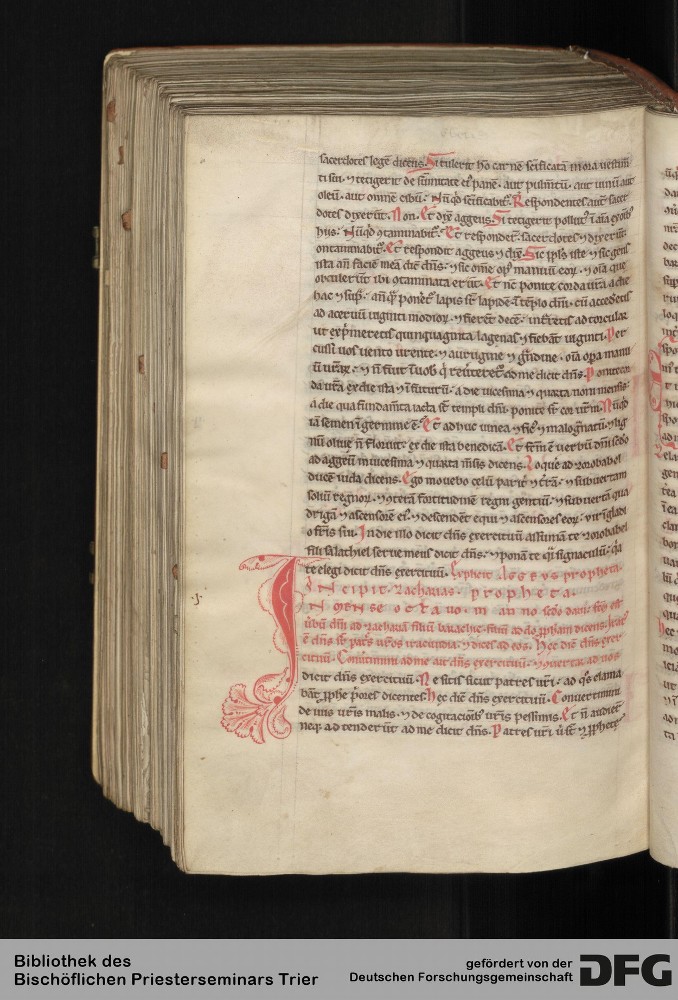 sacerdotes legē dicens. Si tulerit hō carnē scīficatā in ora uestim̄
ti sui. ⁊ tetigerit de sūmitate eiꝰ panē. aut pulmtū. aut uinū aut
oleū. aut omnē cibū. Nūqd scīficabit̄. Respondentes aut̄ sacer
dotes dixerūt. Non. Et dix̄ aggeus. Si tetigerit pollutꝰ
Et respondert̄ sacerdotes ⁊ dixerūt.
ontaminabit̄. Et respondit aggeus ⁊ dix̄. Sic ppl̄s iste ⁊ sic gens
ista an̄ faciē meā dic̄ dn̄s. ⁊ sic om̄e opꝰ manuū eoꝝ. ⁊ oīa que
obtulerūt ibi ꝯtaminata erūt. Et nc̄ ponite corda ur̄a a die
hac ⁊ sup̄. an̄ꝙ pōnet̄ lapis sr̄ lapidē ī tēplo dn̄i. cū accedetis
ad aceruū uiginti modioꝝ. ⁊ fierēt decē. intretis ad torcular
ut exp̄meretis quinquaginta lagenas. ⁊ fiebāt uiginti. Per
cussi uos uento urente. ⁊ aurugine ⁊ grādine. oīa opa manu
ū ur̄aꝝ. ⁊ n̄ fuit ī uob̄ q̄ reūteret̄ ad me dicit dn̄s. Ponite cor
da ur̄a ex die ista ⁊ ī futurū. a die uicesima ⁊ quarta noni mensis.
a die qua fundam̄ta iacta st̄ templi dn̄i. ponite sr̄ cor ur̄m. Nūqd
iā semen ī germine ē. Et adhuc uinea ⁊ ficꝰ ⁊ malognatū. ⁊ lig
nū oliue n̄ floruit. ex die ista benedicā. Et fc̄m ē uerbū dn̄i sc̄do
ad aggeū in uicesima ⁊ quarta m̄sis dicens. Loquere ad zorobabel
ducē iuda dicens. Ego mouebo celū parit̄ ⁊ tr̄ā. ⁊ subuertam
soliū regnoꝝ. ⁊ ꝯterā fortitudinē regni gentiū. ⁊ subuertā qua
drigā ⁊ ascensorē eiꝰ. ⁊ descendēt equi ⁊ ascensores eoꝝ. uir ī gladi
o fr̄is sui. In die illo dicit dn̄s exercituū assumā te zorobabel
filii salathiel serue meus dicit dn̄s. ⁊ ponā te q̄i signaculū. q̄a
te elegi dicit dn̄s exercituū. Explicit Aggeus propheta.
Incipit Zacharias. propheta.
IN MENSE OCTAUO. in anno sc̄do darii
ūbū dn̄i ad zachariā filiū barachie. filiū addo ꝓpham dicens. Irat
ē dn̄s sr̄ patr̄s ur̄os iracundia. ⁊ dices ad eos. Hec dic̄ dn̄s exer
cituū. Conūtimini ad me ait dn̄s exercituū. ⁊ ꝯuertar ad uos
dicit dn̄s exercituū. Ne sitis sicut patres ur̄i. ad q̄s clama
bāt ꝓphe p̄ores dicentes. Hec dic̄ dn̄s exercituū. Conuertimini
de uiis ur̄is malis. ⁊ de cogitacioīb ur̄is pessimis. Et n̄ audier̄
neqꝫ adtenderūt ad me dicit dn̄s. Patres ur̄i
Bibliothek des
Bischöflichen Priesterseminars Trier
gefördert von der
Deutschen Forschungsgemeinschaft
DFG